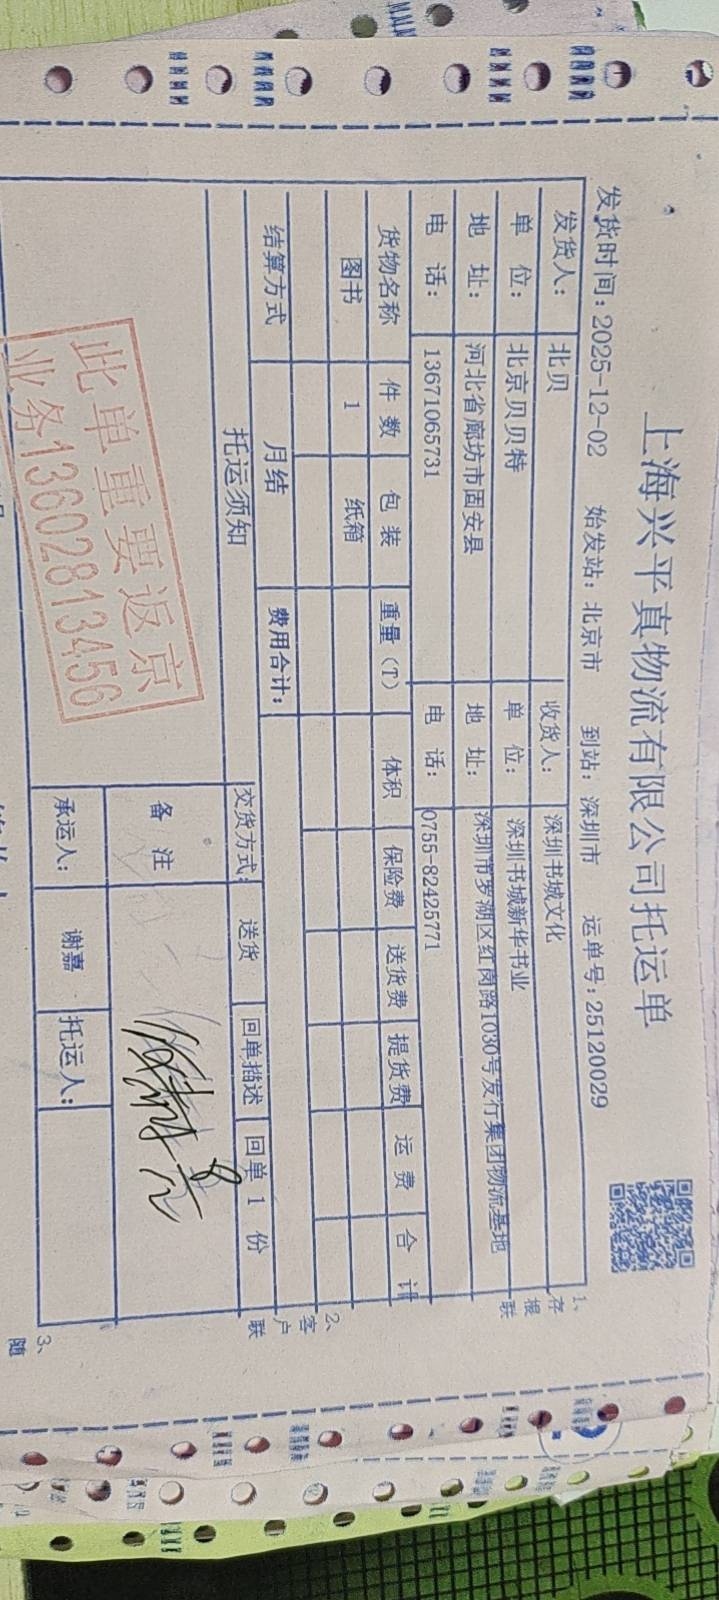 上海兴平真物流有限公司托运单
发货时间：2025-12-02 始发站：北京市 到站：深圳市 运单号：25120029
发货人： 北贝 收货人： 深圳书城文化
单 位： 北京贝贝特 单 位： 深圳书城新华书业
地 址： 河北省廊坊市固安县 地 址： 深圳市罗湖区红岗路1030号发行集团物流基地
电 话： 13671065731 电 话： 0755-82425771
货物名称 件 数 包 装 重量（T） 体积 保险费 送货费 提货费 运 费 合 计
图书 1 纸箱
结算方式 月结 费用合计：
托运须知 交货方式： 送货 回单描述 回单 1 份
备 注
承运人： 谢嘉 托运人：
此单重要返京
业务13602813456
1、存根联
2、客户联
3、随